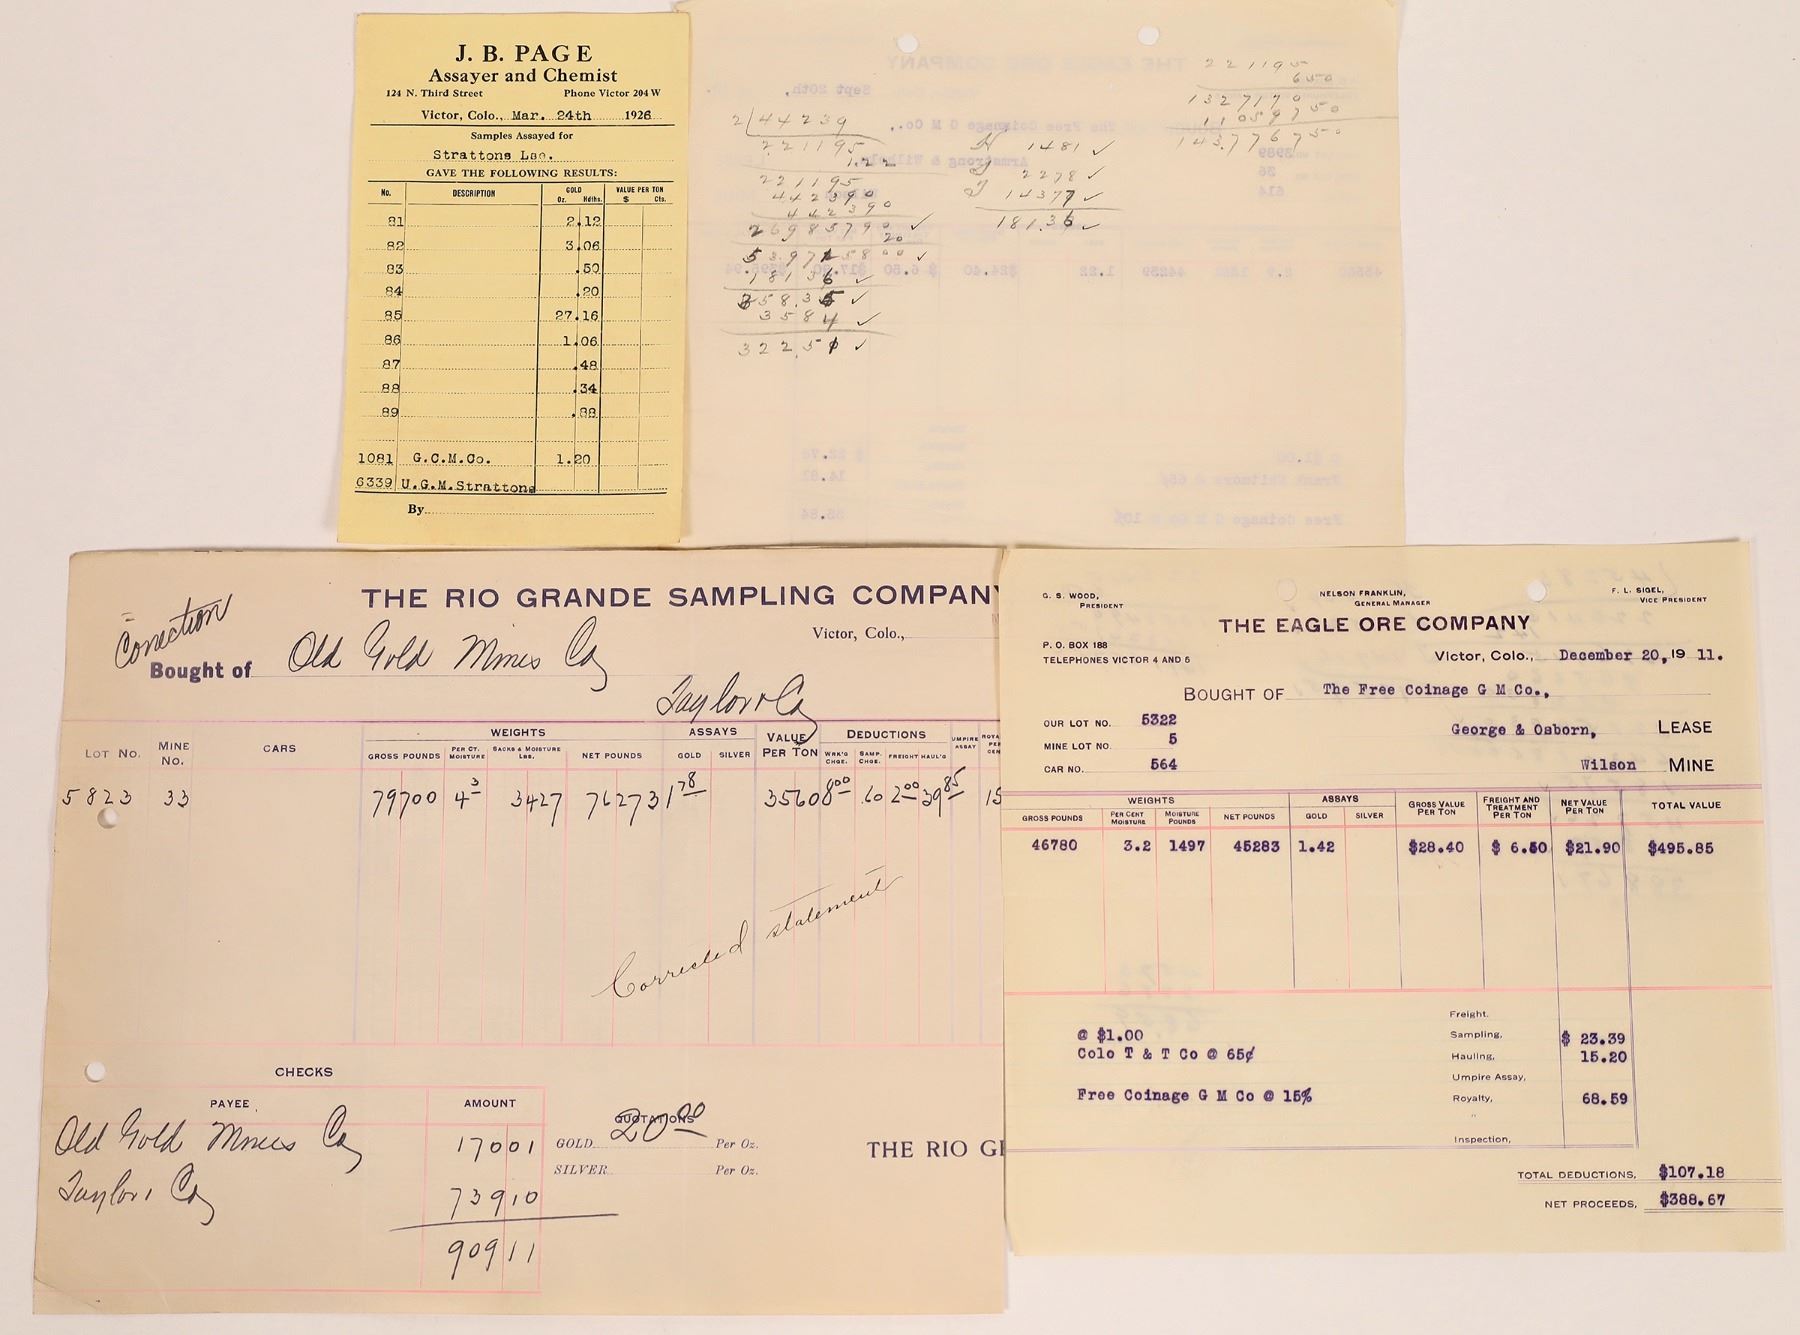 J. B. PAGE
Assayer and Chemist
124 N. Third Street Phone Victor 204 W
Victor, Colo., Mar. 24th 1926
Samples Assayed for
Strattons Lse.
GAVE THE FOLLOWING RESULTS:
No. DESCRIPTION GOLD VALUE PER TON
Oz. Hdths. $ Cts.
81 2.12
82 3.06
83 .50
84 .20
85 27.16
86 1.06
87 .48
88 .34
89 .88
1081 G.C.M.Co. 1.20
6339 U.G.M.Strattons
By
2 44239
221195
1.22
221195
442390
442390
26985790
20
18136
3584
322.51
1481
2278
14377
181.36
221195
650
1327170
11059750
143.776750
THE EAGLE ORE COMPANY
Sept 20th,
The Free Coinage G M Co.,
Armstrong & Wilhelm,
3989
26
614
44239 1.22 $24.40 $ 6.50 $17.90
@ $1.00
Frank Whitmore @ 65¢
Free Coinage G M Co @ 10%
Correction
THE RIO GRANDE SAMPLING COMPANY
Victor, Colo.,
Bought of Old Gold Mines Co
Taylor & Co
LOT No. MINE No. CARS WEIGHTS ASSAYS VALUE PER TON DEDUCTIONS UMPIRE ASSAY
GROSS POUNDS PER CT. MOISTURE SACKS & MOISTURE LBS. NET POUNDS GOLD SILVER WRK'G CHGE. SAMP. CHGE. FREIGHT HAUL'G
5823 33 79700 4.3 3427 76273 1.78 3560 8.00 .60 2.00 39.85 15
Corrected statement
CHECKS
PAYEE AMOUNT
Old Gold Mines Co 170 01
Taylor & Co 739 10
909 11
QUOTATIONS
GOLD 20.00 Per Oz.
SILVER Per Oz.
THE RIO GR
G. S. WOOD, PRESIDENT
NELSON FRANKLIN, GENERAL MANAGER
F. L. SIGEL, VICE PRESIDENT
THE EAGLE ORE COMPANY
P. O. BOX 188
TELEPHONES VICTOR 4 AND 5
Victor, Colo., December 20, 19 11.
BOUGHT OF The Free Coinage G M Co.,
OUR LOT NO. 5322
George & Osborn, LEASE
MINE LOT NO. 5
CAR NO. 564
Wilson MINE
WEIGHTS ASSAYS GROSS VALUE PER TON FREIGHT AND TREATMENT PER TON NET VALUE PER TON TOTAL VALUE
GROSS POUNDS PER CENT MOISTURE MOISTURE POUNDS NET POUNDS GOLD SILVER
46780 3.2 1497 45283 1.42 $28.40 $ 6.50 $21.90 $495.85
Freight.
@ $1.00 Sampling, $ 23.39
Colo T & T Co @ 65¢ Hauling, 15.20
Umpire Assay,
Free Coinage G M Co @ 15% Royalty, 68.59
"
Inspection,
TOTAL DEDUCTIONS, $107.18
NET PROCEEDS, $388.67